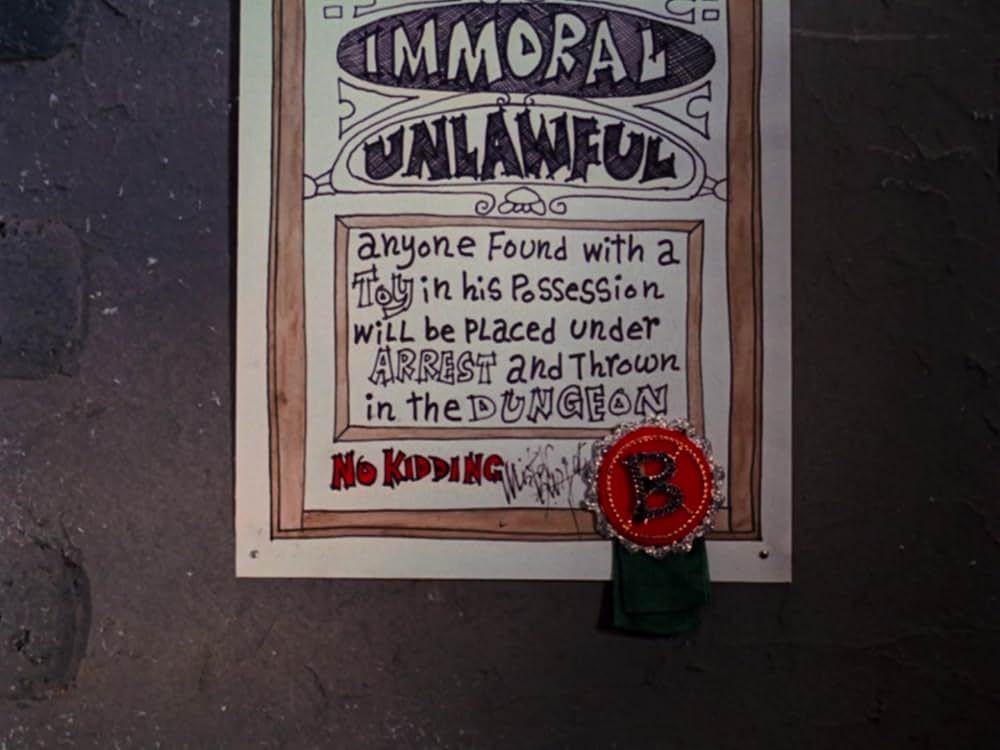 IMMORAL
UNLAWFUL
anyone Found with a
Toy in his Possession
will be Placed under
ARREST and Thrown
in the DUNGEON
No KIDDING
B